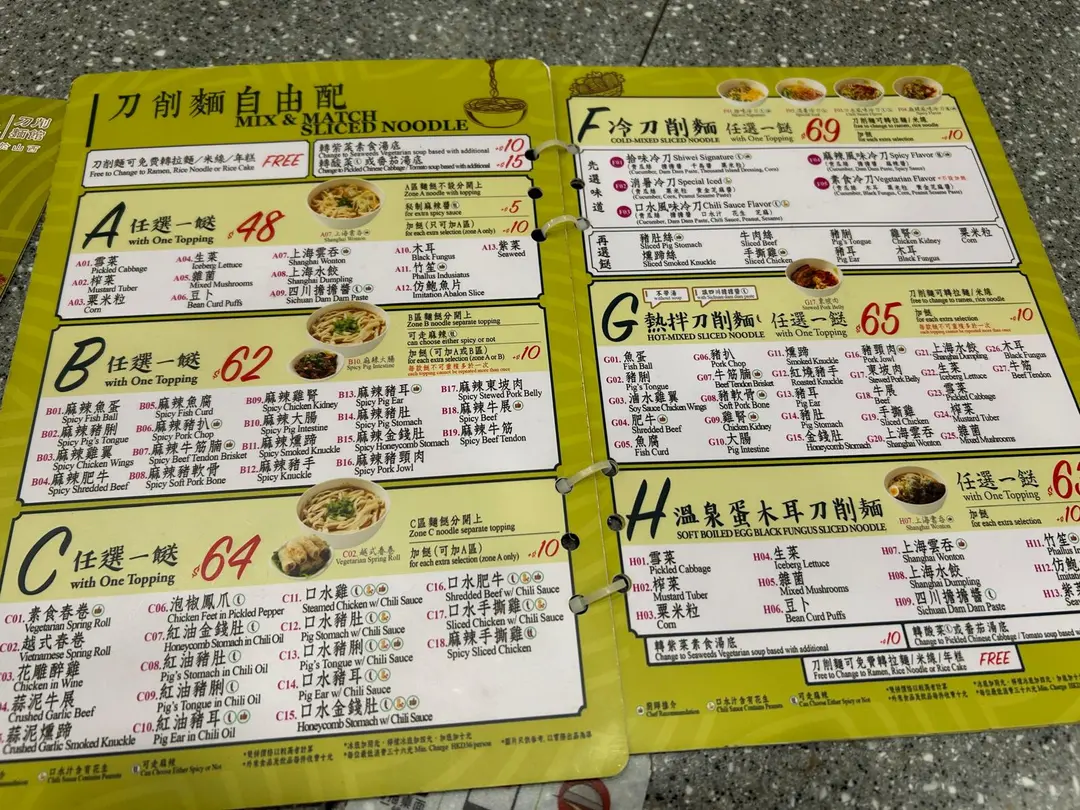 刀削
麵館
刀削麵自由配
MIX & MATCH
SLICED NOODLE
刀削麵可免費轉拉麵/米線/年糕
Free to Change to Ramen, Rice Noodle or Rice Cake
FREE
轉紫菜素食湯底
Change to Seaweeds Vegetarian soup based with additional
+$10
轉酸菜或番茄湯底
Change to Pickled Chinese Cabbage / Tomato soup based with additional
+$15
A 任選一餸 $48
with One Topping
A07.上海雲吞
Shanghai Wonton
A區麵餸不設分開上
Zone A noodle with topping
秘製麻辣醬
for extra spicy sauce
+$5
加餸(只可加A區)
for each extra selection (zone A only)
+$10
A01.雪菜
Pickled Cabbage
A02.榨菜
Mustard Tuber
A03.粟米粒
Corn
A04.生菜
Iceberg Lettuce
A05.雜菌
Mixed Mushrooms
A06.豆卜
Bean Curd Puffs
A07.上海雲吞
Shanghai Wonton
A08.上海水餃
Shanghai Dumpling
A09.四川擔擔醬
Sichuan Dam Dam Paste
A10.木耳
Black Fungus
A11.竹笙
Phallus Indusiatus
A12.仿鮑魚片
Imitation Abalone Slice
A13.紫菜
Seaweed
B 任選一餸 $62
with One Topping
B10.麻辣大腸
Spicy Pig Intestine
B區麵餸分開上
Zone B noodle separate topping
可走麻辣
can choose either spicy or not
加餸(可加A或B區)
for each extra selection (zone A or B)
+$10
每款餸不可重複多於一次
each topping cannot be repeated more than once
B01.麻辣魚蛋
Spicy Fish Ball
B02.麻辣豬脷
Spicy Pig's Tongue
B03.麻辣雞翼
Spicy Chicken Wings
B04.麻辣肥牛
Spicy Shredded Beef
B05.麻辣魚腐
Spicy Fish Curd
B06.麻辣豬扒
Spicy Pork Chop
B07.麻辣牛筋腩
Spicy Beef Tendon Brisket
B08.麻辣豬軟骨
Spicy Soft Pork Bone
B09.麻辣雞腎
Spicy Chicken Kidney
B10.麻辣大腸
Spicy Pig Intestine
B11.麻辣燻蹄
Spicy Smoked Knuckle
B12.麻辣豬手
Spicy Knuckle
B13.麻辣豬耳
Spicy Pig Ear
B14.麻辣豬肚
Spicy Pig Stomach
B15.麻辣金錢肚
Spicy Honeycomb Stomach
B16.麻辣豬頸肉
Spicy Pork Jowl
B17.麻辣東坡肉
Spicy Stewed Pork Belly
B18.麻辣牛展
Spicy Beef
B19.麻辣牛筋
Spicy Beef Tendon
C 任選一餸 $64
with One Topping
C02.越式春卷
Vegetarian Spring Roll
C區麵餸分開上
Zone C noodle separate topping
加餸(可加A區)
for each extra selection (zone A only)
+$10
C01.素食春卷
Vegetarian Spring Roll
C02.越式春卷
Vietnamese Spring Roll
03.花雕醉雞
Chicken in Wine
04.蒜泥牛展
Crushed Garlic Beef
蒜泥燻蹄
Crushed Garlic Smoked Knuckle
C06.泡椒鳳爪
Chicken Feet in Pickled Pepper
C07.紅油金錢肚
Honeycomb Stomach in Chili Oil
C08.紅油豬肚
Pig's Stomach in Chili Oil
C09.紅油豬脷
Pig's Tongue in Chili Oil
C10.紅油豬耳
Pig Ear in Chili Oil
C11.口水雞
Steamed Chicken w/ Chili Sauce
C12.口水豬肚
Pig Stomach w/ Chili Sauce
C13.口水豬脷
Pig's Tongue w/ Chili Sauce
C14.口水豬耳
Pig Ear w/ Chili Sauce
C15.口水金錢肚
Honeycomb Stomach w/ Chili Sauce
C16.口水肥牛
Shredded Beef w/ Chili Sauce
C17.口水手撕雞
Sliced Chicken w/ Chili Sauce
C18.麻辣手撕雞
Spicy Sliced Chicken
口水汁含有花生
Chili Sauce Contains Peanuts
可走麻辣
Can Choose Either Spicy or Not
*堅持價格以較高者計算
*外來食品及飲品每件收費十元
*凍飲加四元,檸檬冰飲加四大,加熱加十元
*每位最低消費三十六元 Min. Charge HKD36/person
*圖片只供參考,以實際出品為準
F 冷刀削麵 任選一餸 $69
COLD-MIXED SLICED NOODLE with One Topping
刀削麵可轉拉麵/米線
free to change to ramen, rice noodle
加餸
for each extra selection
+$10
先選味道
F01 拾味冷刀 Shiwei Signature
(青瓜絲 擔擔醬 千島醬 粟米)
(Cucumber, Dam Dam Paste, Thousand Island Dressing, Corn)
F02 消暑冷刀 Special Iced
(青瓜絲 粟米 黃金花麻醬)
(Cucumber, Corn, Peanut Sesame Paste)
F03 口水風味冷刀 Chili Sauce Flavor
(青瓜絲 擔擔醬 口水汁 花生 芝麻)
(Cucumber, Dam Dam Paste, Chili Sauce, Peanut, Sesame)
F04 麻辣風味冷刀 Spicy Flavor
F05 素食冷刀 Vegetarian Flavor
(青瓜絲 木耳 粟米 黃金花麻醬)
(Cucumber, Black Fungus, Corn, Peanut Sesame Paste)
再選餸
豬肚絲
Sliced Pig Stomach
燻蹄絲
Sliced Smoked Knuckle
牛肉絲
Sliced Beef
手撕雞
Sliced Chicken
豬脷
Pig's Tongue
豬耳
Pig Ear
雞腎
Chicken Kidney
木耳
Black Fungus
粟米粒
Corn
G 熱拌刀削麵 任選一餸 $65
HOT-MIXED SLICED NOODLE with One Topping
不帶湯
without soup
跟四川擔擔醬
with Sichuan dam dam paste
G17.東坡肉
Stewed Pork Belly
刀削麵可轉拉麵/米線
free to change to ramen, rice noodle
加餸
for each extra selection
+$10
每款餸不可重複多於一次
each topping cannot be repeated more than once
G01.魚蛋
Fish Ball
G02.豬脷
Pig's Tongue
G03.滷水雞翼
Soy Sauce Chicken Wings
G04.肥牛
Shredded Beef
G05.魚腐
Fish Curd
G06.豬扒
Pork Chop
G07.牛筋腩
Beef Tendon Brisket
G08.豬軟骨
Soft Pork Bone
G09.雞腎
Chicken Kidney
G10.大腸
Pig Intestine
G11.燻蹄
Smoked Knuckle
G12.紅燒豬手
Roasted Knuckle
G13.豬耳
Pig Ear
G14.豬肚
Pig Stomach
G15.金錢肚
Honeycomb Stomach
G16.豬頸肉
Pork Jowl
G17.東坡肉
Stewed Pork Belly
G18.牛展
Beef
G19.手撕雞
Sliced Chicken
G20.上海雲吞
Shanghai Wonton
G21.上海水餃
Shanghai Dumpling
G22.生菜
Iceberg Lettuce
G23.雪菜
Pickled Cabbage
G24.榨菜
Mustard Tuber
G25.雜菌
Mixed Mushrooms
G26.木耳
Black Fungus
G27.牛筋
Beef Tendon
H 溫泉蛋木耳刀削麵
SOFT BOILED EGG BLACK FUNGUS SLICED NOODLE
H07.上海雲吞
Shanghai Wonton
任選一餸
with One Topping
加餸
for each extra selection
+$10
H01.雪菜
Pickled Cabbage
H02.榨菜
Mustard Tuber
H03.粟米粒
Corn
H04.生菜
Iceberg Lettuce
H05.雜菌
Mixed Mushrooms
H06.豆卜
Bean Curd Puffs
H07.上海雲吞
Shanghai Wonton
H08.上海水餃
Shanghai Dumpling
H09.四川擔擔醬
Sichuan Dam Dam Paste
H11.竹笙
H12.仿鮑
H13.紫
轉紫菜素食湯底
Change to Seaweeds Vegetarian soup based with additional
+$10
轉酸菜或番茄湯底
Change to Pickled Chinese Cabbage / Tomato soup based
刀削麵可免費轉拉麵/米線/年糕
Free to Change to Ramen, Rice Noodle or Rice Cake
FREE
廚師推介
Chef Recommendation
口水汁含有花生
Chili Sauce Contains Peanuts
可走麻辣
Can Choose Either Spicy or Not